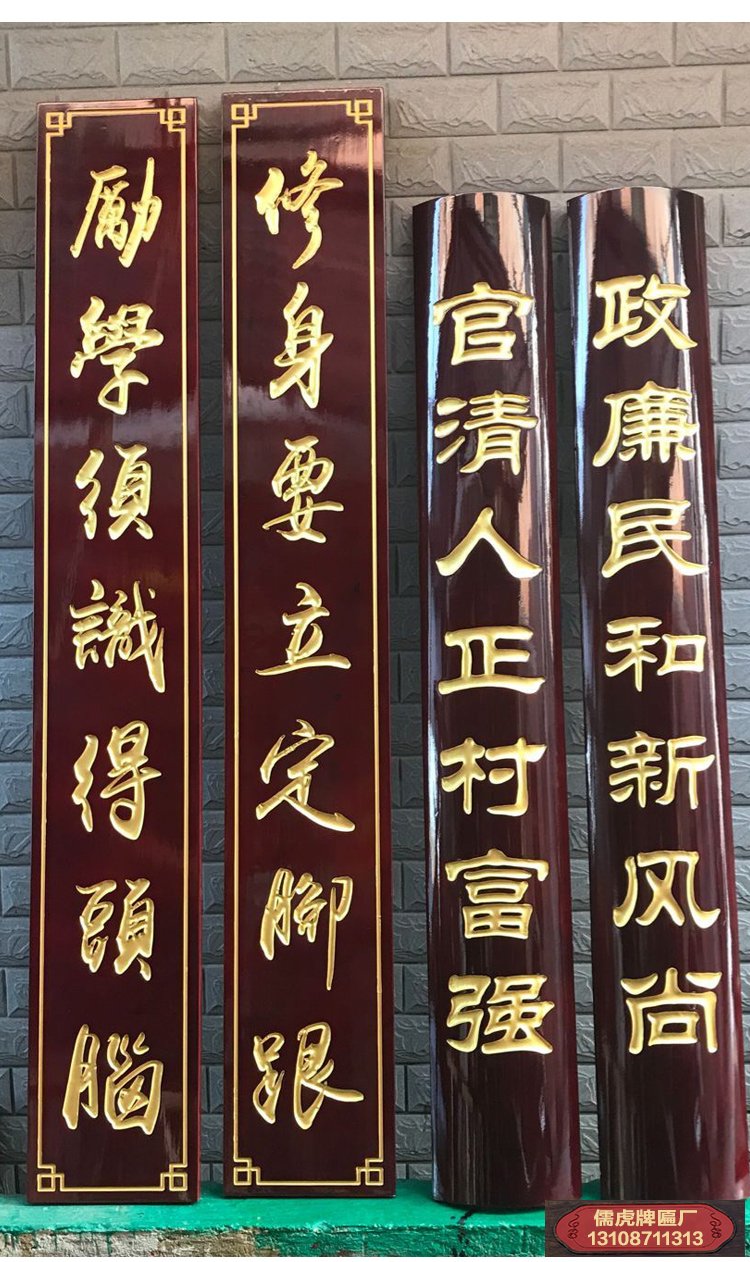 政廉民和新风尚
官清人正村富强
修身要立定腳跟
勵學須識得頭腦
儒虎牌匾厂
13108711313